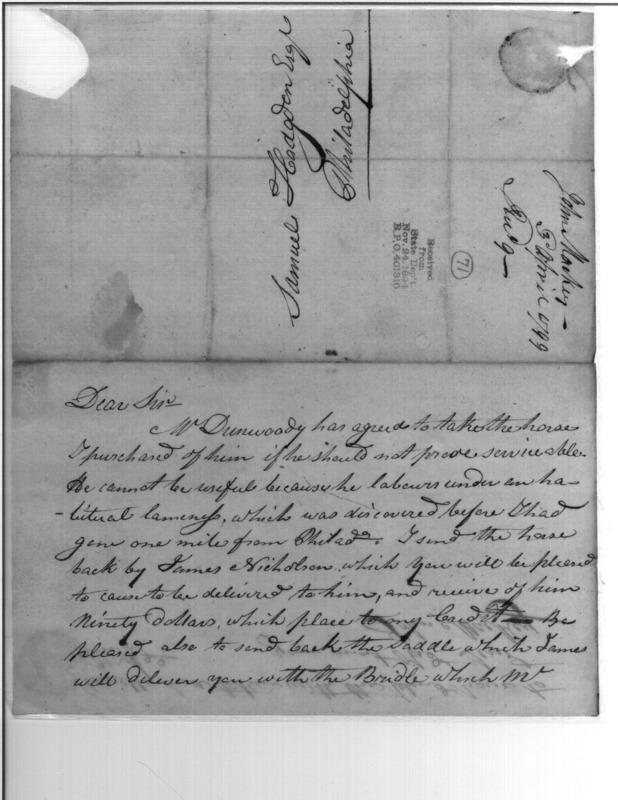 Samuel Hodgden Esqr
Philadelphia
Received
from
State Dept.
Nov. 24, 1894
R.P.O. 401816
71
John
3 April 1799
Dear Sir
Mr Dunwoody has agreed to take the horse
I purchased of him if he should not prove serviceable.
He cannot be useful because he labours under an ha-
-bitual lameness, which was discovered before I had
gone one mile from Philada. I send the horse
back by James Nicholson, which you will be pleased
to cause to be delivered to him, and receive of him
Ninety Dollars, which place to my Credit — Be
pleased also to send back the Saddle which James
will deliver you with the Bridle which Mr